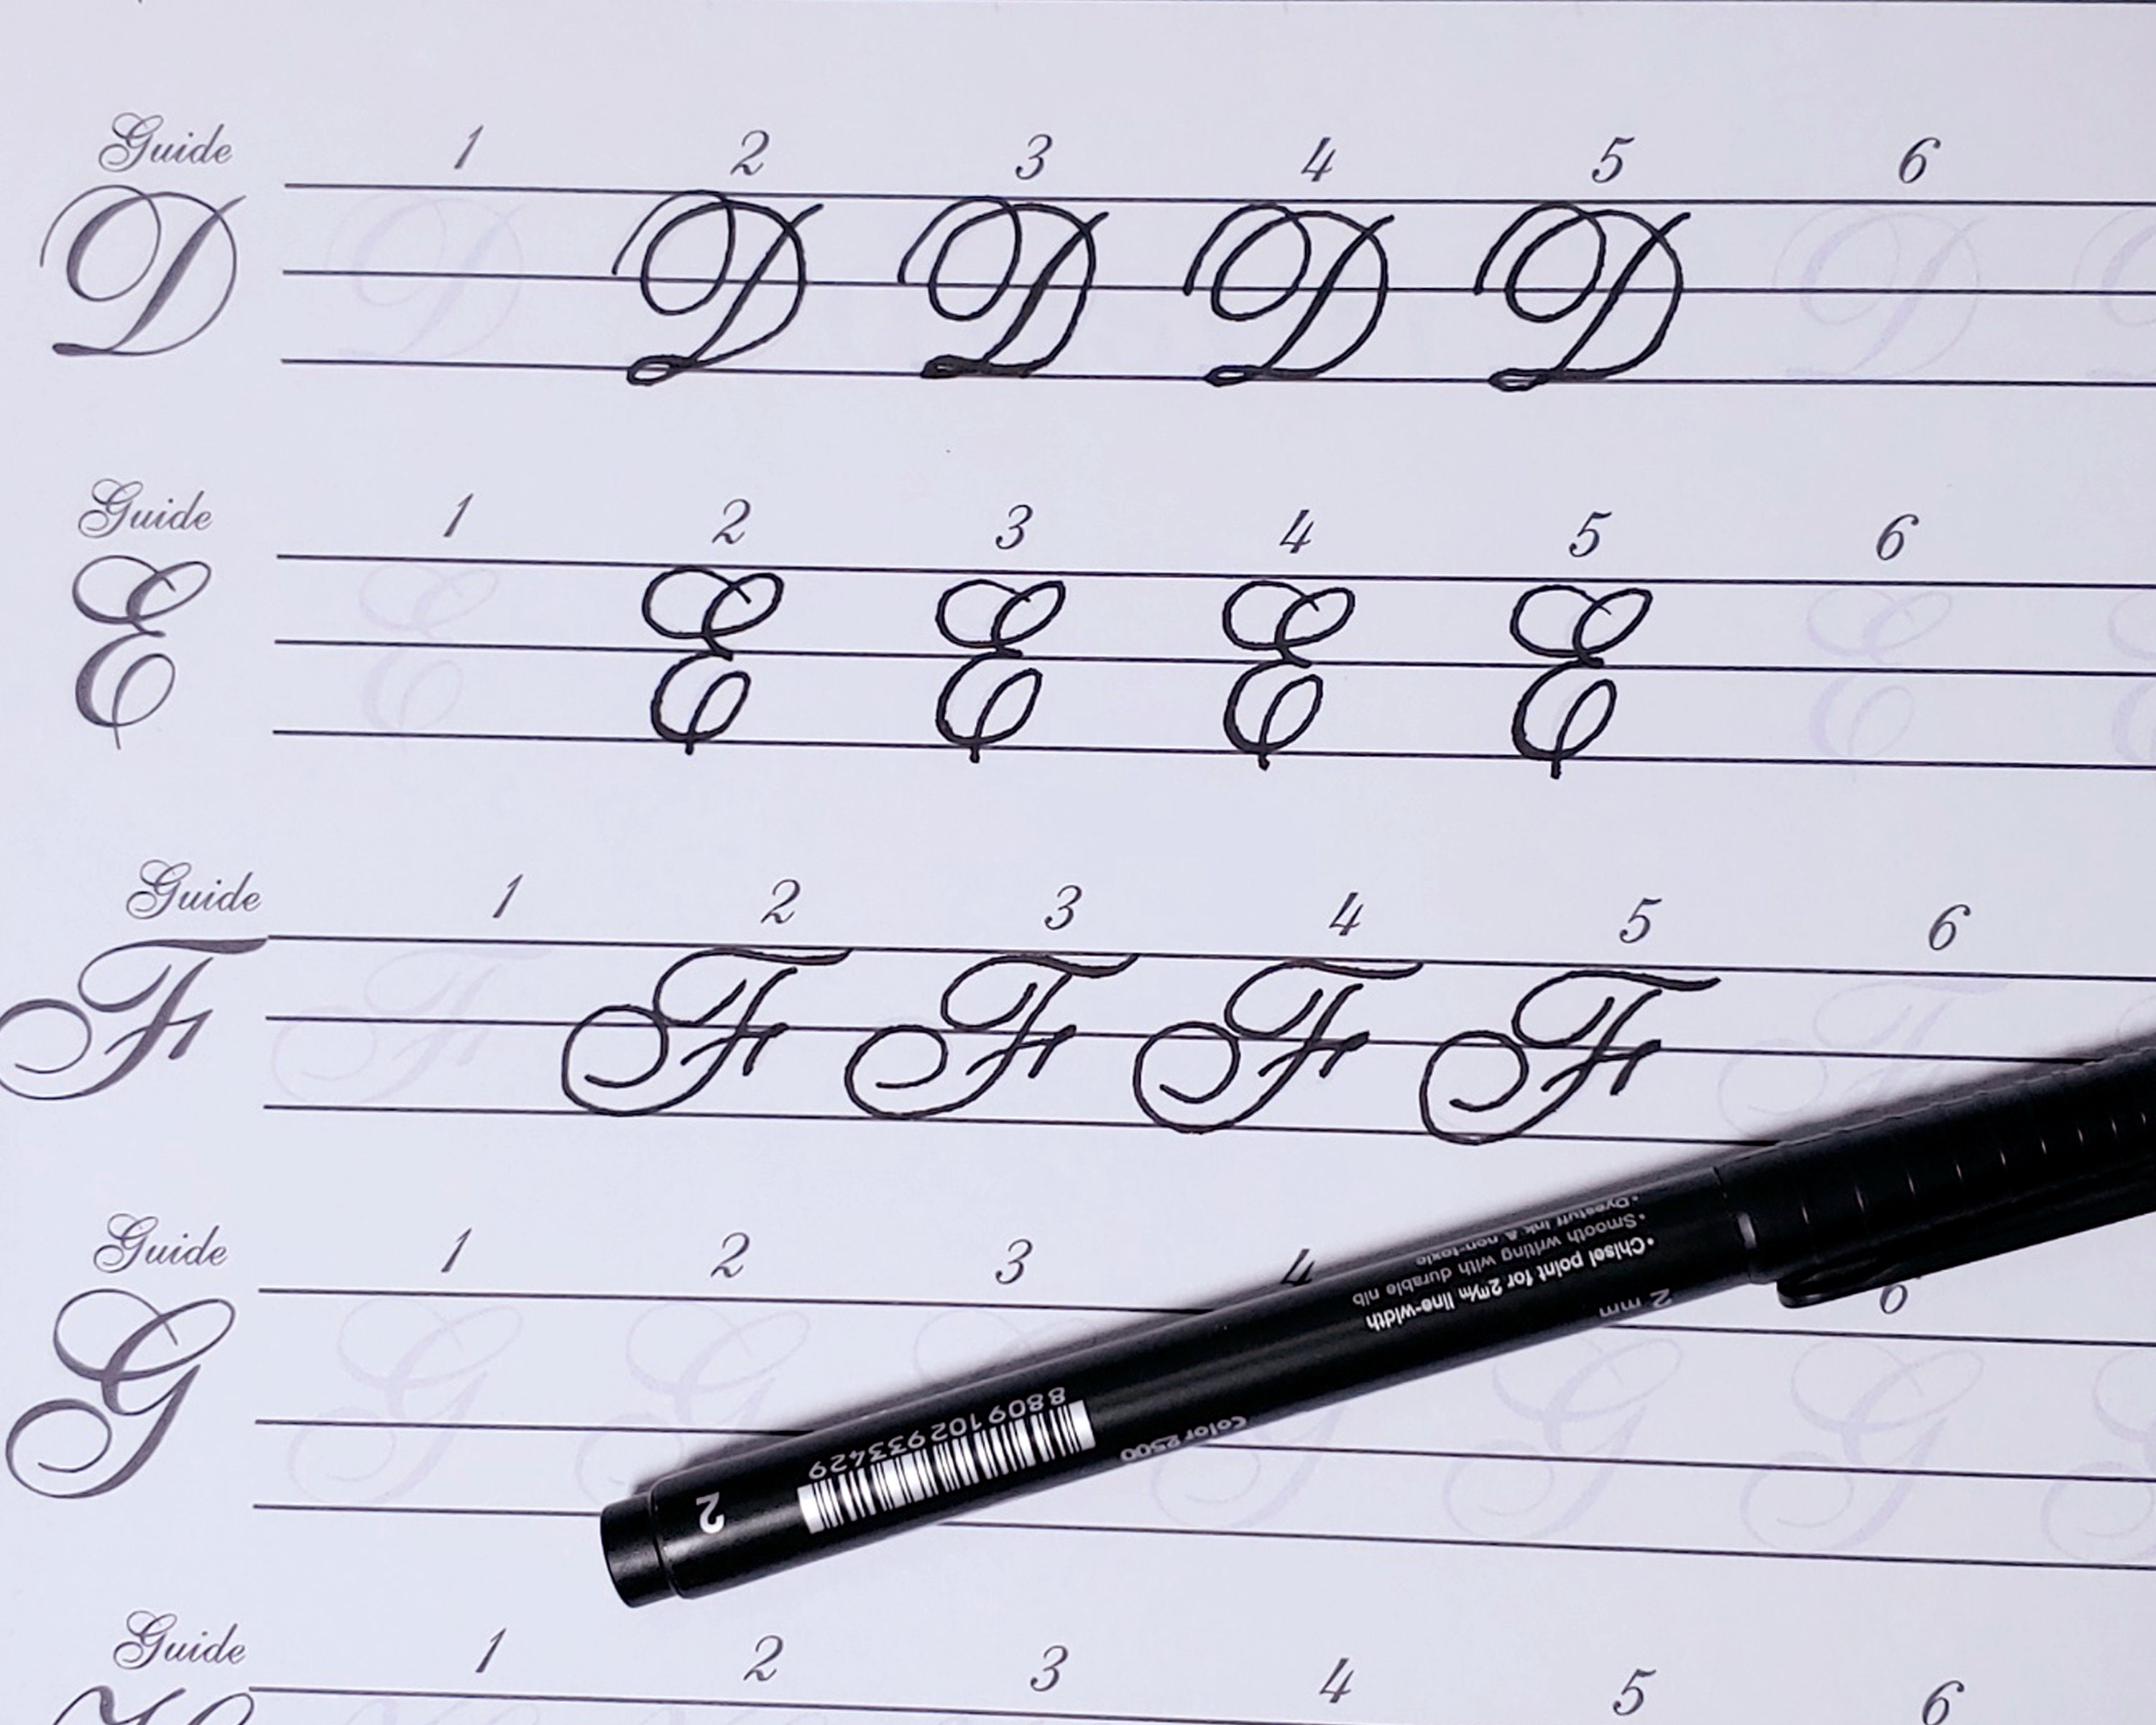 Guide 1 2 3 4 5 6
D D D D D D D
Guide 1 2 3 4 5 6
E E E E E E E
Guide 1 2 3 4 5 6
F F F F F F F
Guide 1 2 3 4 6
G G G G G G G
• Chisel point for 2 m/m line-width
• Smooth writing with durable nib
• Dyestuff ink & non-toxic
2 mm
Color 2500
8809102933429
2
Guide 1 2 3 4 5 6
H